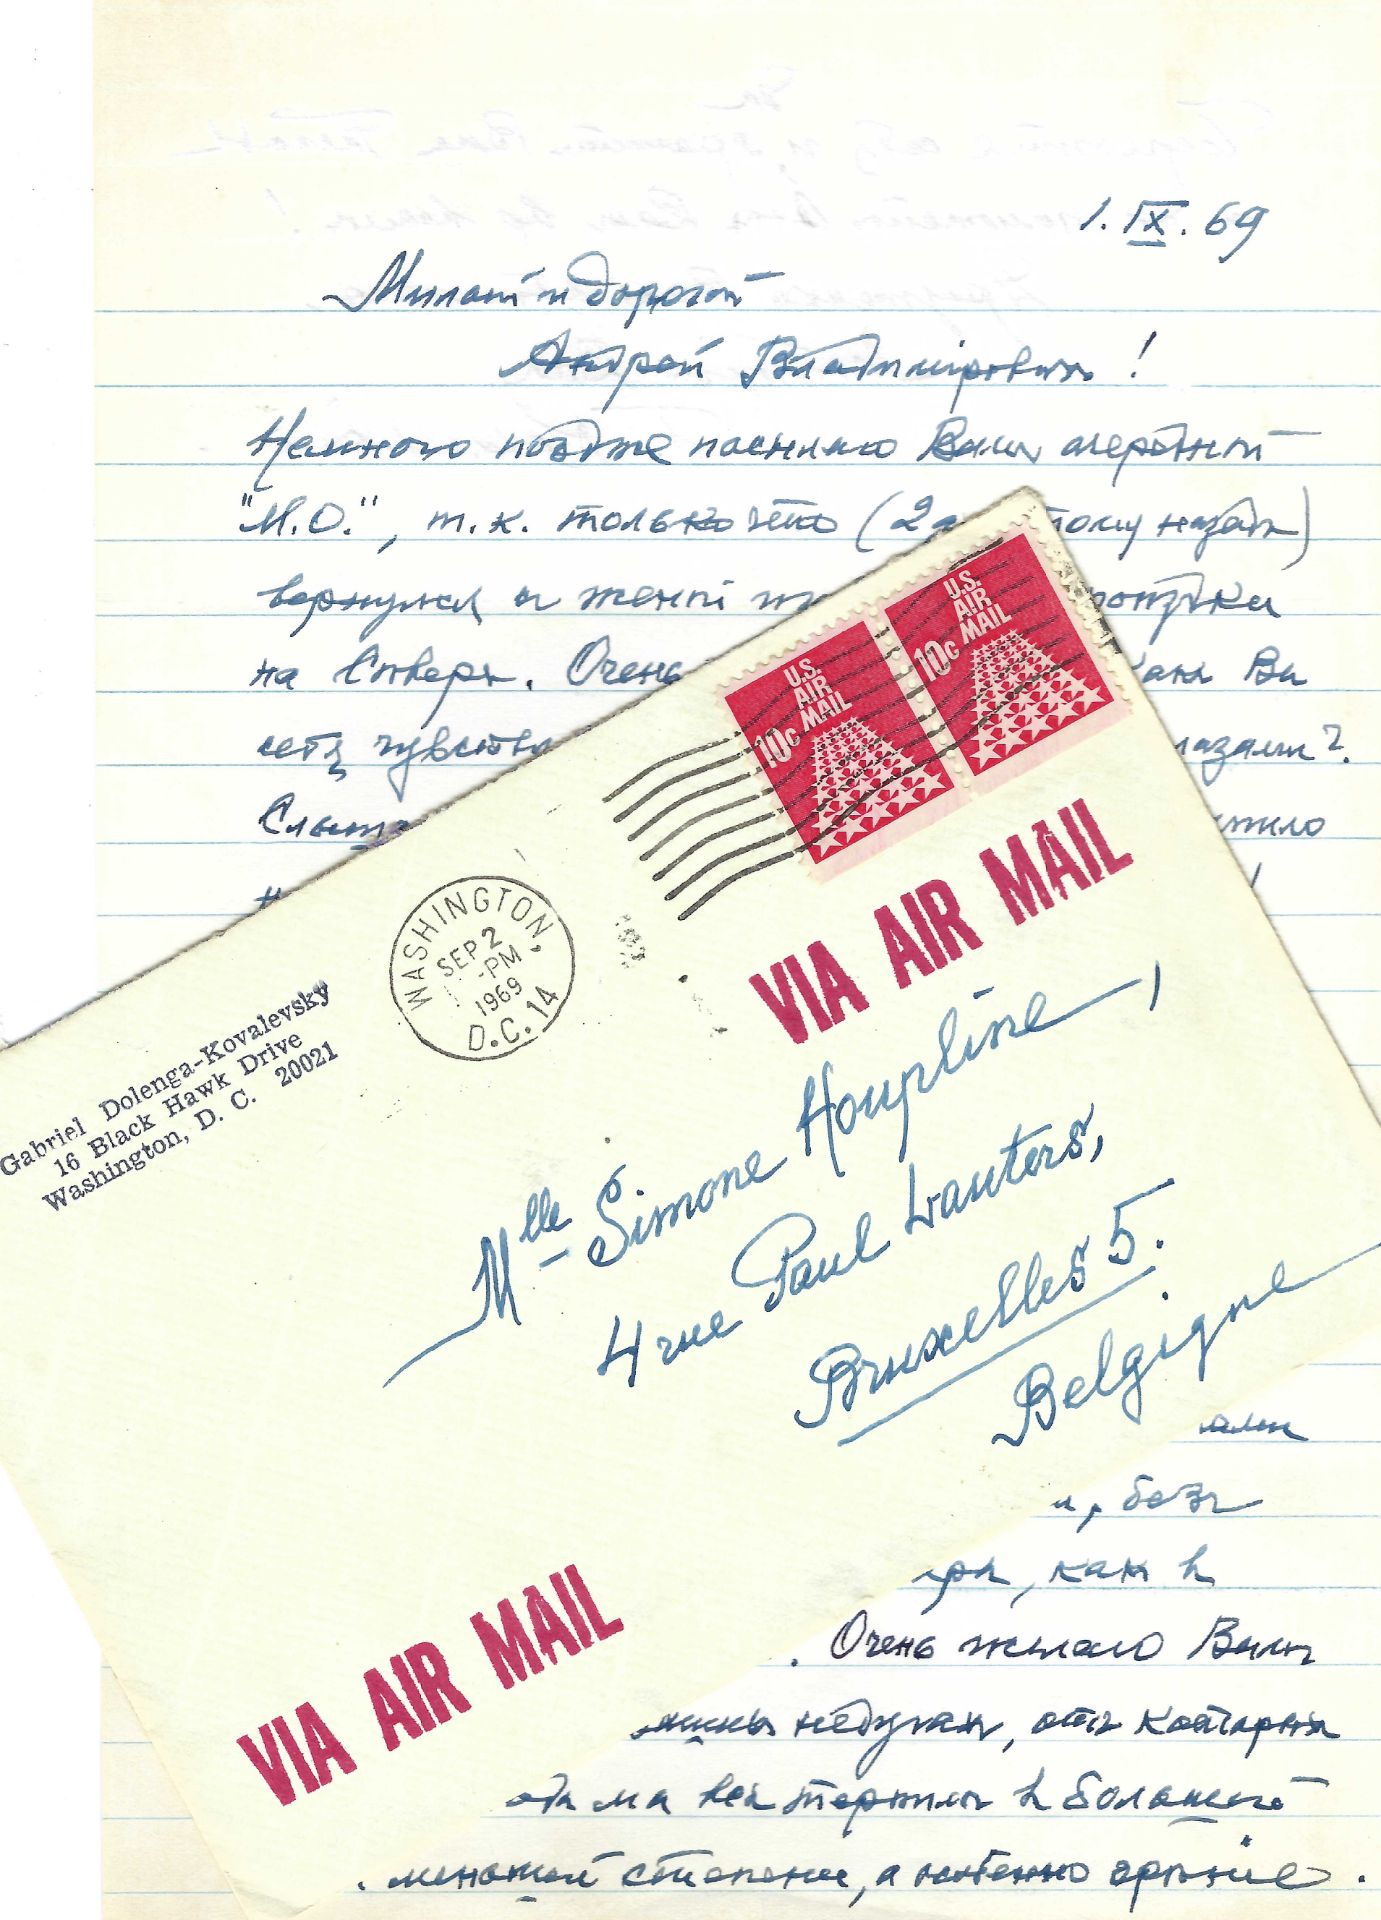 1. IX. 69
Милый и дорогой
Андрей Владимірович!
Немного позже посылаю Вамъ очередной
"М.О.", т.к. только что (2 тому назадъ)
вернулся съ женой поѣздки
на Сѣверъ. Очень какъ Вы
себя чувств глазами?
U.S.
AIR
MAIL
10c
U.S.
AIR
MAIL
10c
WASHINGTON,
SEP 2
-PM
1969
D.C. 14
VIA AIR MAIL
Gabriel Dolenga-Kovalevsky
16 Black Hawk Drive
Washington, D. C. 20021
Mlle Simone Houpline,
4 rue Paul Lauters,
Bruxelles 5.
Belgique
VIA AIR MAIL
, безъ
, какъ и
. Очень желаю Вамъ
недугам, отъ которыхъ
мы всѣ терпимъ в большей
меньшей степени, а особенно зрѣніе.